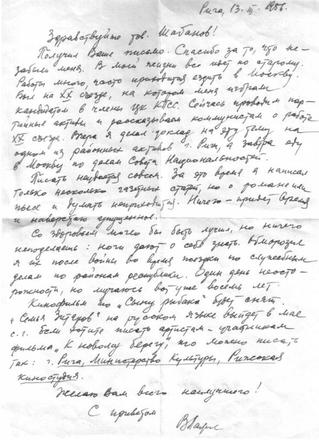 Рига, 13.III.1956.
Здравствуйте тов. Шабанов!
Получил Ваше письмо. Спасибо за то, что не-
забыли меня. В моей жизни все идет по старому.
Работы много часто приходится ездить в Москву.
Был на XX съезде, на котором меня избрали
кандидатом в члены ЦК КПСС. Сейчас проводим пар-
тийные активы и рассказываем коммунистам о работе
XX съезда. Вчера я делал доклад на эту тему на
одном из районных активов г. Риги, а завтра еду
в Москву по делам Совета Национальностей.
Писать неудается совсем. За это время я написал
только несколько газетных статей, но о романе или
пьесе и думать неприходится. Ничего – придет время
и наверстаю упущенное.
Со здоровьем могло бы быть лучше, но ничего
неподелаешь: ноги дают о себе знать. Отморозил
я их после войны во время поездки по служебным
делам по районам республики. Один день неосто-
рожности, но мучаюсь вот уже восемь лет.
Кинофильм по „Сыну рыбака" будет снят.
„Семья Зитаров" на русском языке выйдет в мае
с.г. Если хотите писать артистам – участникам
фильма „К новому берегу", то можно писать
так: г. Рига, Министерство Культуры, Рижская
киностудия.
Желаю Вам всего наилучшего!
С приветом
ВЛацис